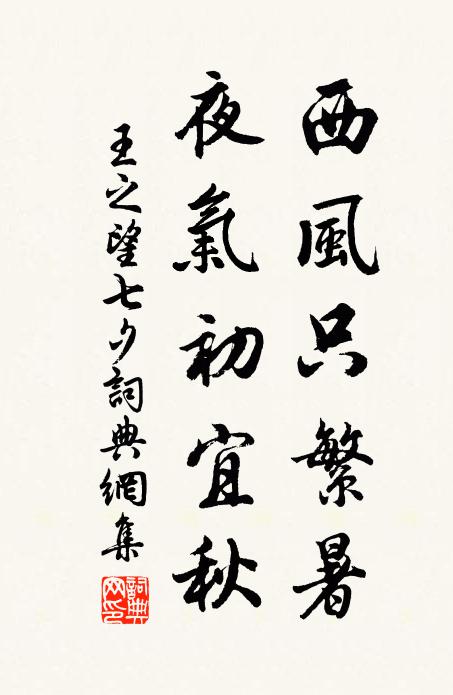 西風只繁暑
夜氣初宜秋
王之望七夕詞典網集
詞典網印